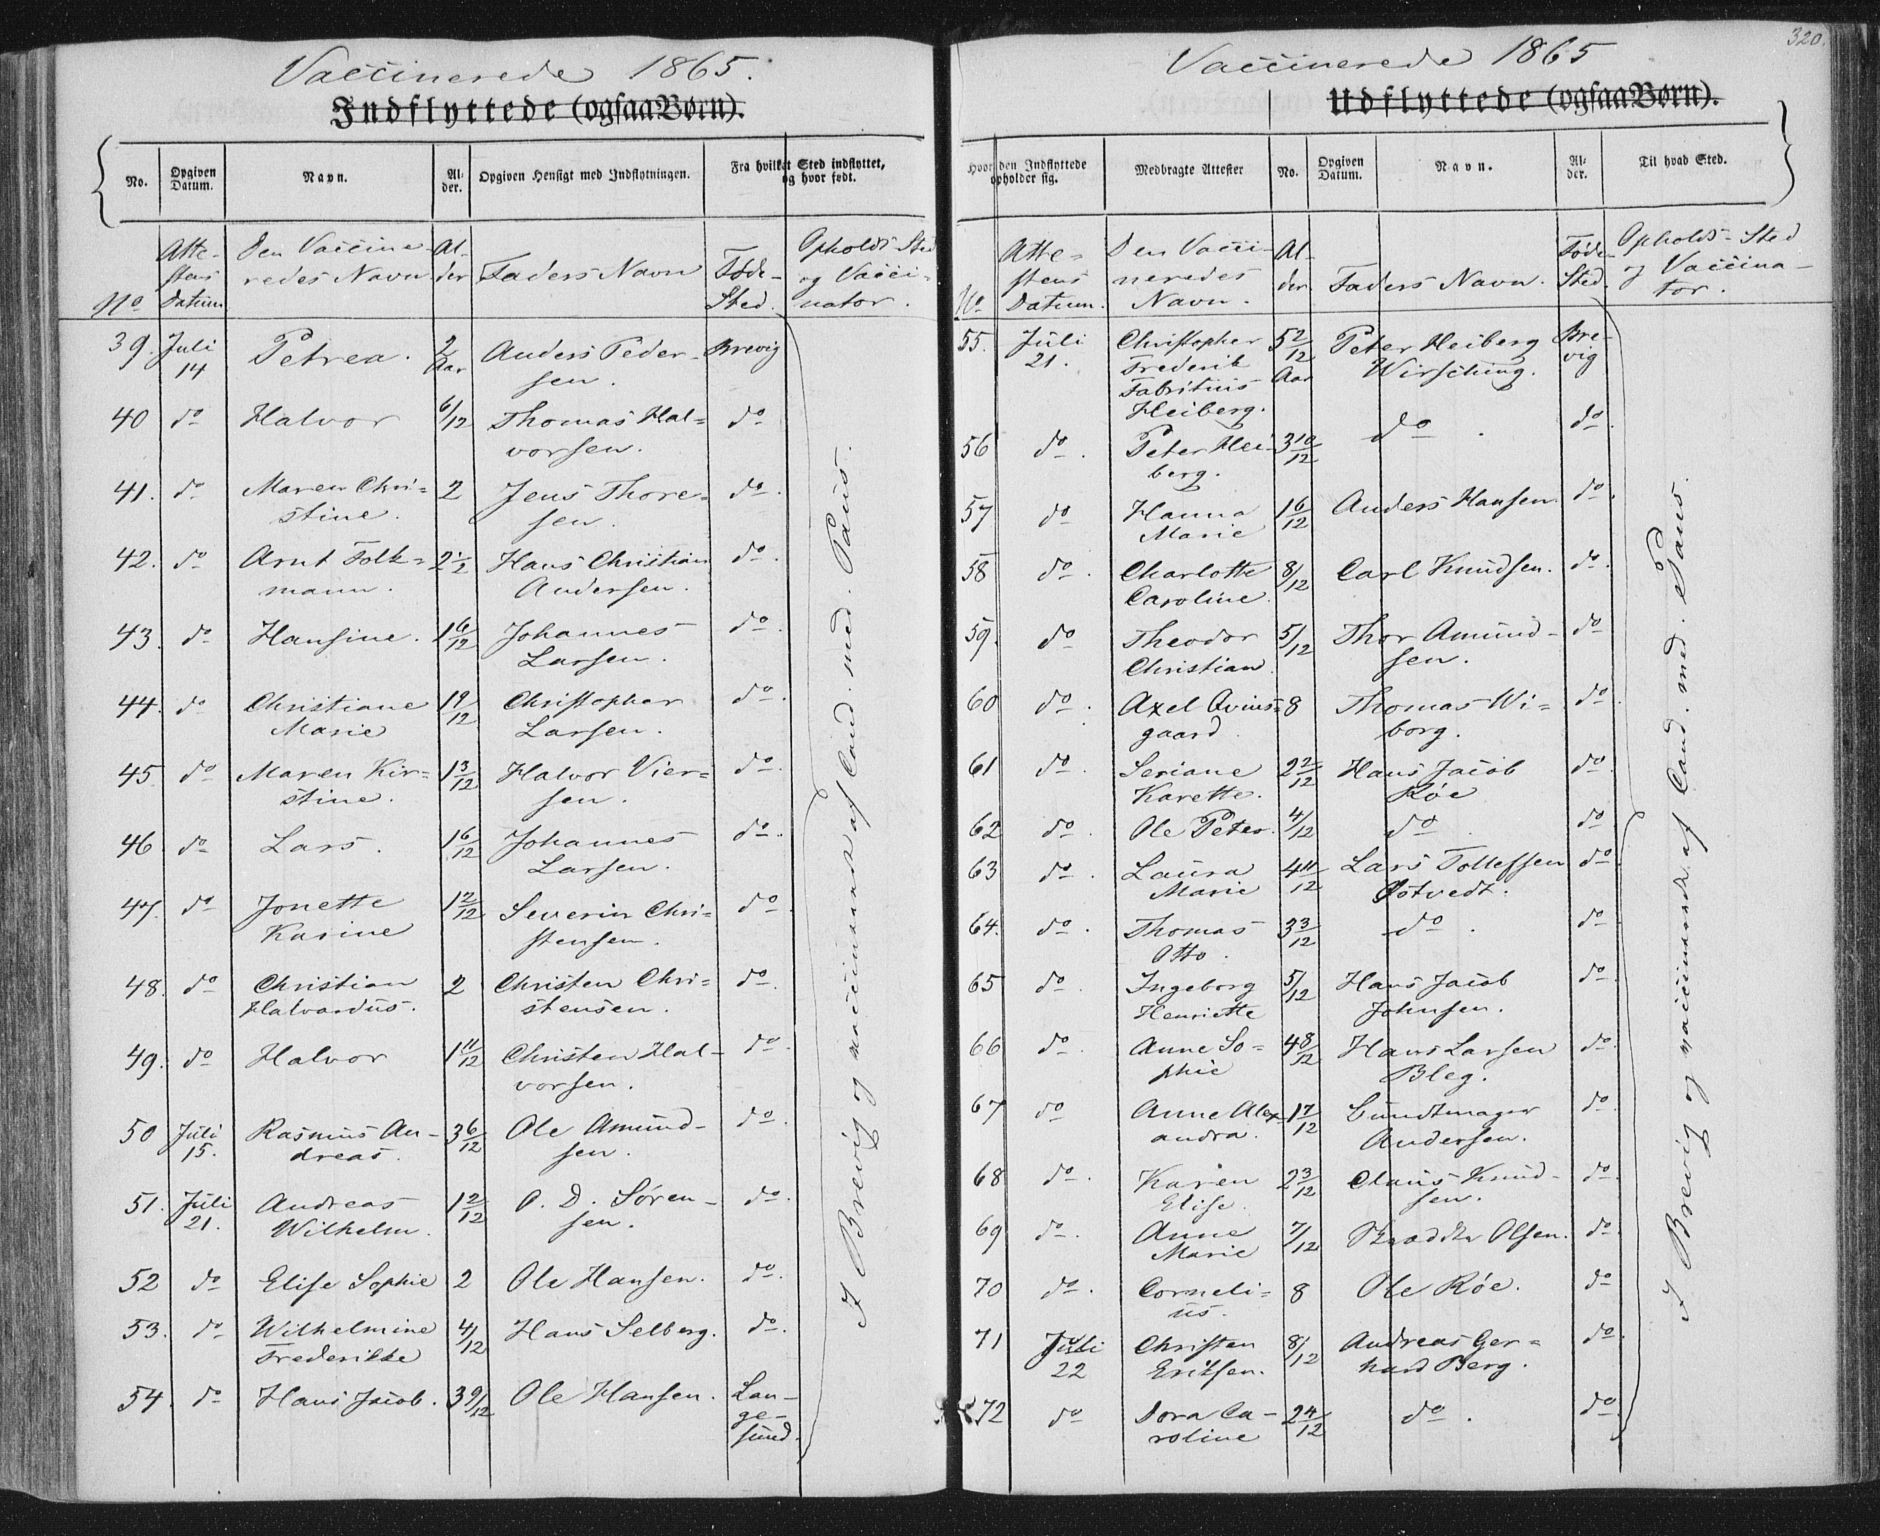 Vaccinerede 1865.
Indflyttede (ogsaa Børn).
No. Opgiven Datum. Navn. Alder. Opgiven Hensigt med Indflytningen. Fra hvilket Sted indflyttet, og hvor født.
No Attestens Datum Den Vaccineredes Navn Alder Faders Navn Føde-Sted. Opholds-Sted og Vaccinator.
39. Juli 14 Petrea. 2 Aar Anders Pedersen. Brevig
40 do Halvor 6/12 Thomas Halvorsen. do
41. do Maren Christine. 2 Jens Thoresen. do.
42. do Arnt Folkmann. 2 1/2 Hans Christian Andersen. do.
43. do Hansine. 1 6/12 Johannes Larsen. do.
44. do Christiane Marie 19/12 Christopher Larsen. do.
45 do Maren Kirstine. 1 3/12 Halvor Viersen. do.
46 do Lars. 1 6/12 Johannes Larsen. do.
47. do Jonette Karine 1 2/12 Severin Christensen. do
48. do Christian Halvardus. 2 Christen Christensen. do.
49. do Halvor 1 11/12 Christen Halvorsen. do.
50 Juli 15. Rasmus Andreas. 3 6/12 Ole Amundsen. do.
51. Juli 21. Andreas Wilhelm. 1 2/12 O. D. Sørensen. do.
52 do Elise Sophie 2 Ole Hansen. do.
53. do Wilhelmine Frederikke 4/12 Hans Selberg. do.
54. do Hans Jacob. 3 9/12 Ole Hansen. Langesund.
I Brevig og vaccinerede af Cand. med. Paus.
320.
Vaccinerede 1865
Udflyttede (ogsaa Børn).
Hvor den Indflyttede opholder sig. Medbragte Attester No. Opgiven Datum. Navn. Alder. Til hvad Sted.
No Attestens Datum. Den Vaccineredes Navn. Alder Faders Navn. Føde-Sted. Opholds-Sted og Vaccinator.
55. Juli 21. Christopher Frederik Fabritius Heiberg. 5 2/12 Aar Peter Heiberg Wirsching. Brevig
56 do. Peter Heiberg. 3 10/12 do. do.
57 do Hanna Marie 1 6/12 Anders Hansen. do.
58 do. Charlotte Caroline. 8/12 Carl Knudsen. do.
59. do Theodor Christian. 5/12 Thor Amundsen. do
60 do. Axel Qvinsgaard. 8 Thomas Wiborg. do.
61 do. Seriane Karette. 2 2/12 Hans Jacob Røe do.
62 do. Ole Peter. 4/12 do. do
63 do. Laura Marie 4 11/12 Lars Tollefsen Østvedt. do.
64. do. Thomas Otto. 3 3/12 do. do
65 do. Ingeborg Henriette 5/12 Hans Jacob Johnsen. do.
66 do. Anne Sophie 4 8/12 Hans Larsen Bleg. do.
67 do Anne Alexandra. 1 7/12 Bundtmager Andersen. do
68 do. Karen Elise. 2 3/12 Claus Knudsen. do.
69 do. Anne Marie 7/12 Skrædder Olsen. do.
70 do. Cornelius. 8 Ole Røe. do
71 Juli 22 Christen Eriksen. 8/12 Andreas Gerhard Berg. do.
72 do Dora Caroline 2 4/12 do. do.
I Brevig og vaccinerede af Cand. med. Paus.